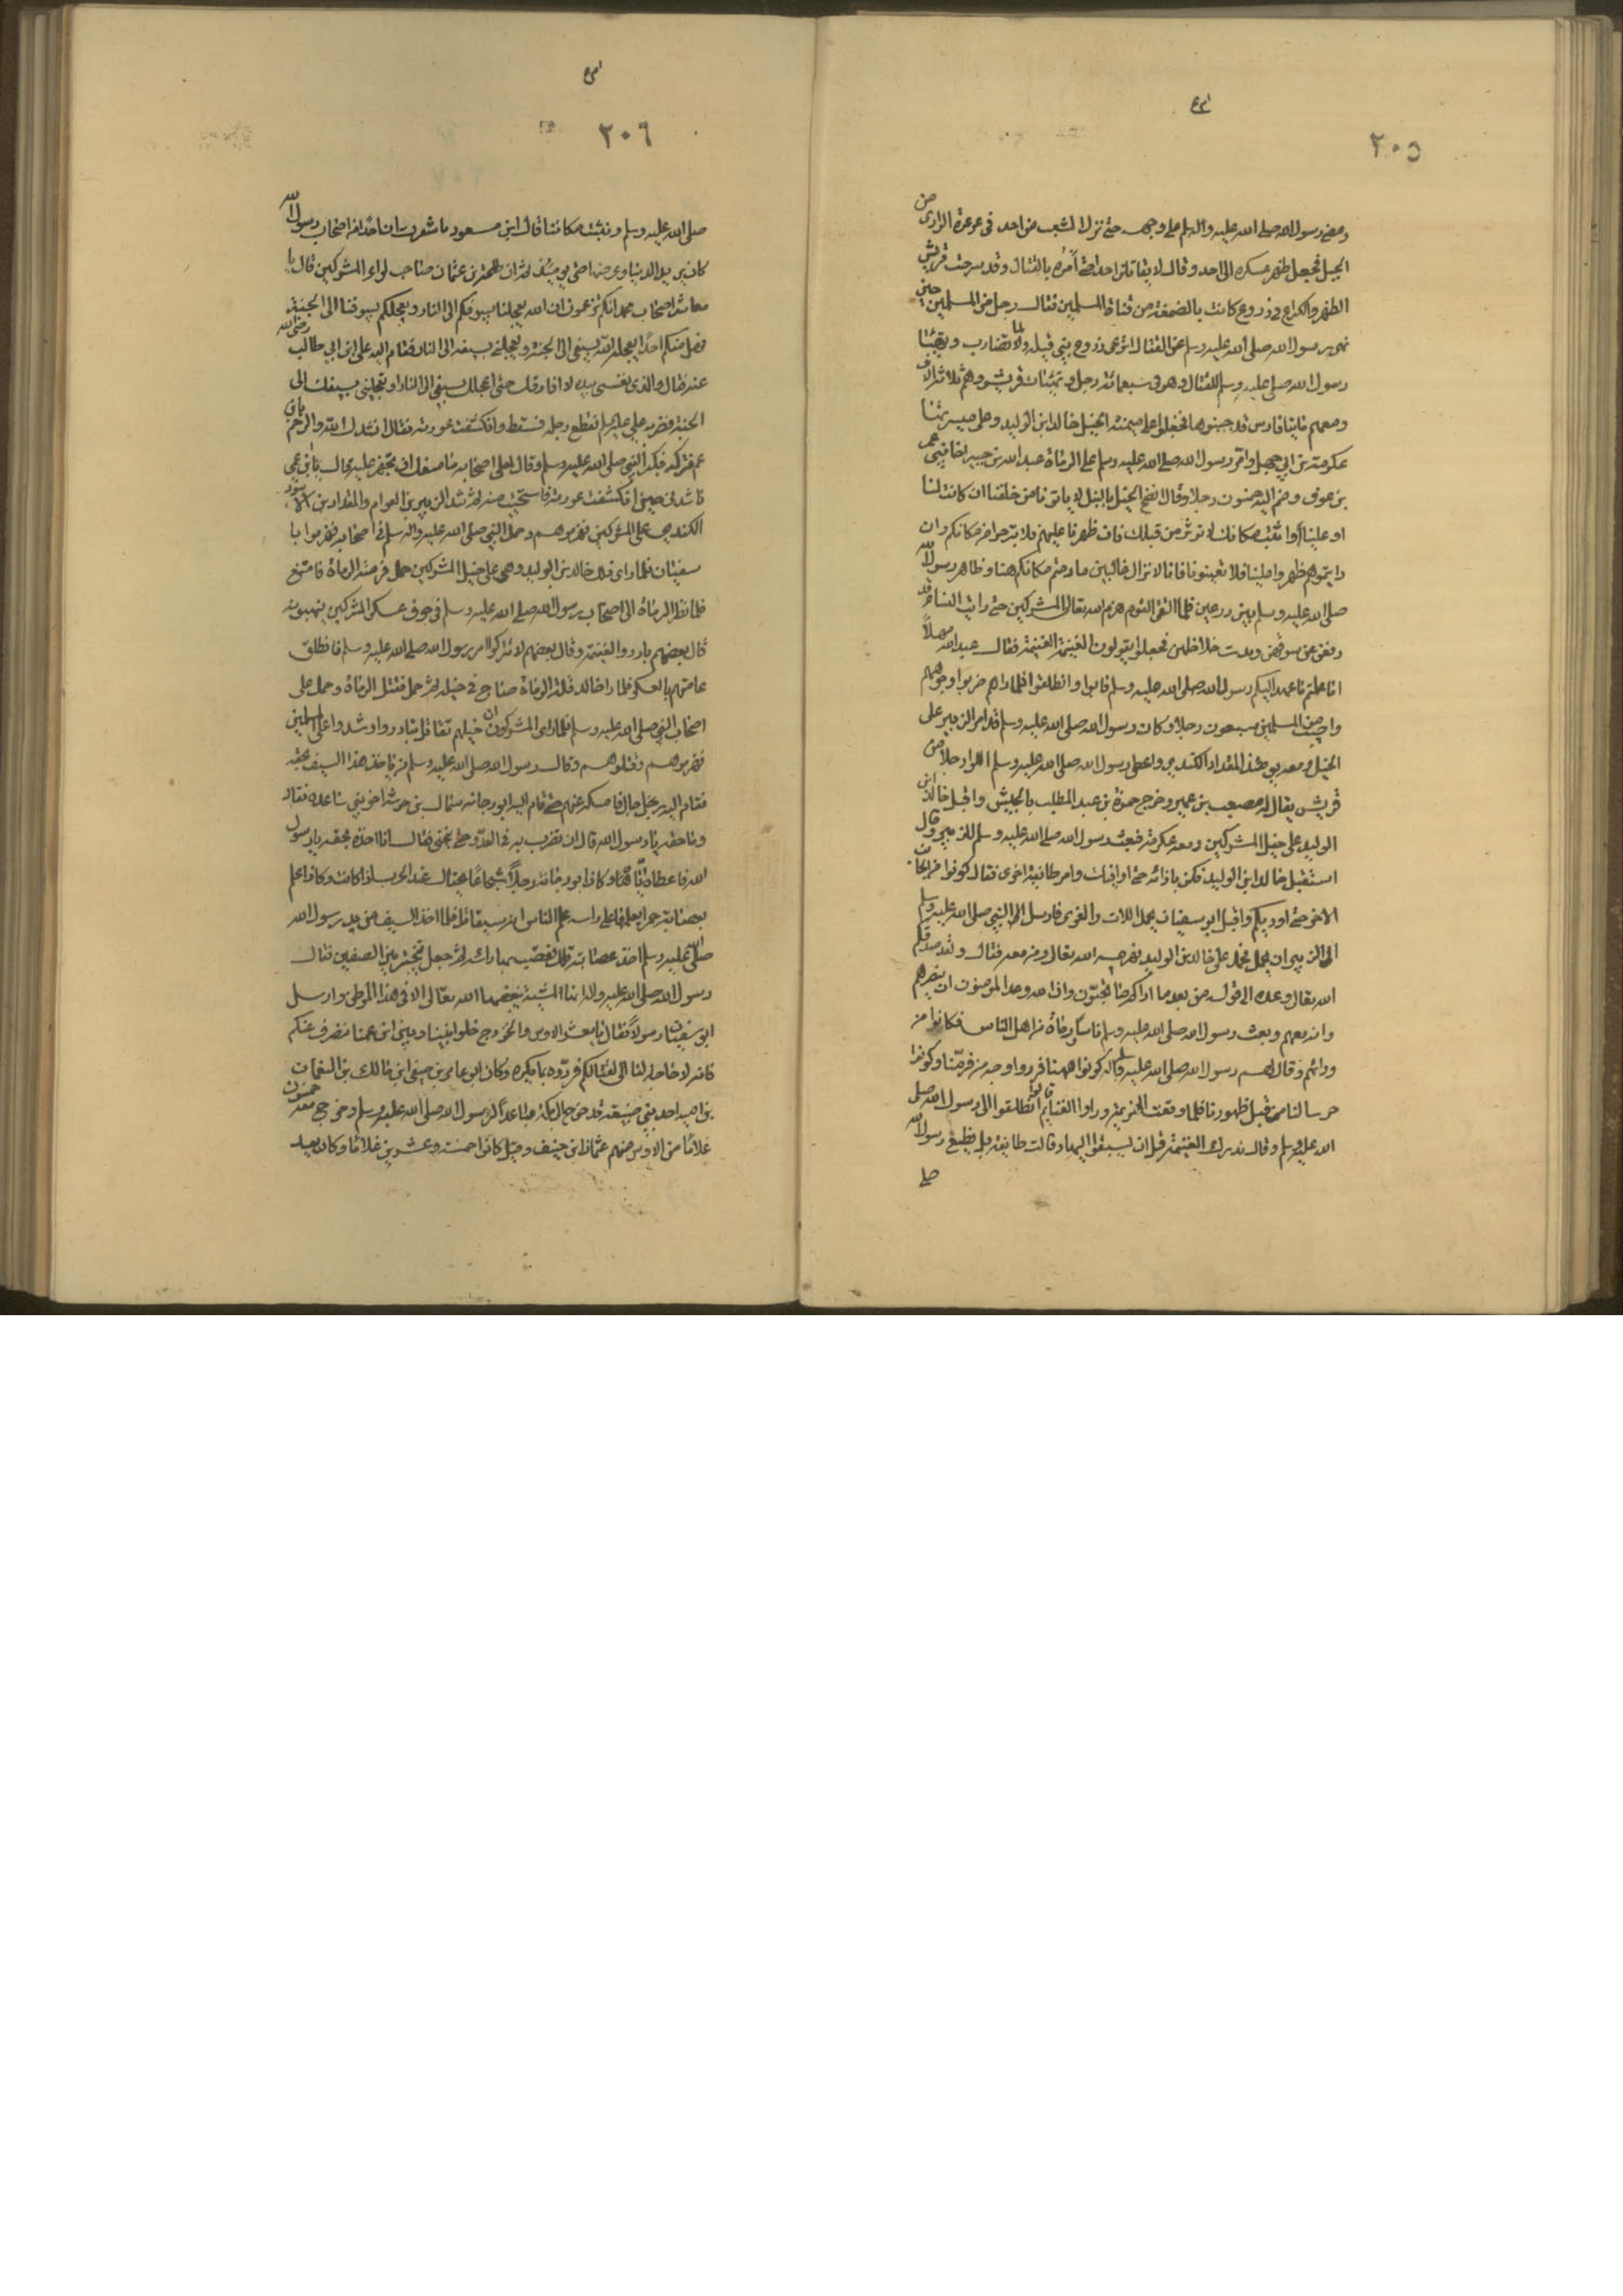 ٢٠٥
ومضى رسول الله صلى الله عليه واله وسلم على وجهه حتى نزل الشعب من احد فى عدوة الوادى من
الجبل فجعل ظهره وعسكره الى احد وقال لا يقاتلن احد حتى أمره بالقتال وقد سرحت قريش
الظهر والكراع فى زروع كانت بالصمغة من قناة المسلمين فقال رجل من المسلمين حين
نهى رسول الله صلى الله عليه وسلم عن القتال اترعى زروع بنى قيلة ولما تضارب وتعبّا
رسول الله صلى الله عليه وسلم للقتال وهو فى سبعمائة رجل وتعبّات قريش وهم ثلاثة الاف
ومعهم مايتا فارس قد جنبوها فجعلوا على ميمنة الخيل خالد ابن الوليد وعلى ميسرتها
عكرمة بن ابى جهل وامّر رسول الله صلى الله عليه وسلم على الرماة عبد الله بن جبير اخا بنى عمر
بن عوف وهم اليه خمسون رجلا وقال انضح الخيل بالنبل لا ياتونا من خلفنا ان كانت لنا
او علينا واثبت مكانك لا نوتى من قبلك فان ظهرنا عليهم فلا تبرحوا من مكانكم وان
رايتموهم ظهروا علينا فلا تعينونا فانا لا نزال غالبين ما دمتم مكانكم هنا وظاهر رسول الله
صلى الله عليه وسلم بين درعين فلما التقى القوم هزم الله تعالى المشركين حتى رايت النساء قد
رفعن عن سوقهن وبدت خلاخلهن فجعلوا يقولون الغنيمة الغنيمة فقال عبد الله مهلاً
اما علمتم ما عهد اليكم رسول الله صلى الله عليه وسلم فابوا وانطلقوا فلما اتاهم ضربوا وجوههم
واصيب من المسلمين سبعون رجلا وكان رسول الله صلى الله عليه وسلم قد امر الزبير على
الخيل ومعه يومئذ المقداد الكندى واعطى رسول الله صلى الله عليه وسلم اللواء رجلا من
قريش يقال له مصعب بن عمير وخرج حمزة بن عبد المطلب بالجيش واقبل خالد ابن
الوليد على خيل المشركين ومعه عكرمة فبعث رسول الله صلى الله عليه وسلم للزبير وقال
استقبل خالد ابن الوليد فكن بازائه حتى اوذنك وامر طائفة اخرى فقال كونوا من الجانب
الاخر حتى اوذيكم واقبل ابو سفيان يحمل اللات والعزى فارسل النبى صلى الله عليه وسلم
الى الزبير ان يحمل فحمل على خالد بن الوليد فهزمه الله تعالى ومن معه فقال ولقد صدقكم
الله تعالى وعده الى قوله من بعد ما اراكم ما تحبون وان الله وعد المومنون ان ينصرهم
وانه معهم وبعث رسول الله صلى الله عليه وسلم ناسا ورماة من اهل الناس فكانوا من
ورائهم وقال لهم رسول الله صلى الله عليه وسلم كونوا ههنا فردوا وجه من فر منا وكونوا
حرسا لنا من قبل ظهورنا فلما وقعت الهزيمة وراوا الغنايم قالوا انطلقوا الى رسول الله صلى
الله عليه وسلم وقال ندرك الغنيمة قبل ان يسبقوا اليها وقالت طائفة بل نطيع رسول الله
صلى
٢٠٦
صلى الله عليه وسلم ونثبت مكاننا قال ابن مسعود ما شعرت ان احدا من اصحاب رسول الله
كان يريد الدنيا وعرضها حتى يومئذ ثم ان طلحة بن عثمان صاحب لواء المشركين قال يا
معاشر اصحاب محمد انكم تزعمون ان الله يعجلنا بسيوفكم الى النار ويعجلكم بسيوفنا الى الجنة
فهل منكم احدا يعجله الله بسيفى الى الجنة او يعجلنى بسيفه الى النار فقام اليه على ابن ابى طالب رضى الله
عنه فقال والذى نفسى بيده لا افارقك حتى اعجلك بسيفى الى النار او تعجلنى بسيفك الى
الجنة فضربه على عليه السلم فقطع رجله فسقط وانكشفت عورته فقال انشدك الله والرحم يا بن
عم فتركه فكبر النبى صلى الله عليه وسلم وقال لعلى اصحابه ما منعك ان تجهز عليه قال ان ابن عمى
ناشدنى حين انكشفت عورته فاستحييت منه ثم شد الزبير بن العوام والمقداد بن الاسود
الكندى على المشركين فهزموهم وحمل النبى صلى الله عليه واله وسلم فى اصحابه فهزموا ابا
سفيان فلما راى ذلك خالد بن الوليد وهو على خيل المشركين حمل فرمته الرماة فامتنع
فلما نظر الرماة الى اصحاب رسول الله صلى الله عليه وسلم فى جوف عسكر المشركين ينهبونه
قال بعضهم بادروا الغنيمة وقال بعضهم لا نترك امر رسول الله صلى الله عليه وسلم فانطلق
عامتهم بالعسكر فلما راى خالد قلة الرماة صاح فى خيله ثم حمل فقتل الرماة وحمل على
اصحاب النبى صلى الله عليه وسلم فلما راى المشركون ان خيلهم تقاتل تبادروا وشدوا على المسلمين
فهزموهم وقتلوهم وقال رسول الله صلى الله عليه وسلم من ياخذ هذا السيف بحقه
فقام اليه رجال فامسكه عنهم حتى قام اليه ابو دجانه سماك بن خرشه اخو بنى ساعده فقال
وما حقه يا رسول الله قال ان تضرب به فى العدو حتى ينحنى فقال انا اخذه بحقه يا رسول
الله فاعطاه اياه وكان ابو دجانه رجلاً شجاعاً يختال عند الحرب اذا كانت وكان اذا علم
بعصابة حمرا يعلمها على راسه علم الناس انه سيقاتل فلما اخذ السيف من يد رسول الله
صلى الله عليه وسلم اخذ عصابته تلك فعصب بها راسه ثم جعل يتبختر بين الصفين فقال
رسول الله صلى الله عليه واله انها لمشية يبغضها الله تعالى الا فى هذا الموطن وارسل
ابو سفيان رسولاً فقال يا معشر الاوس والخزرج خلوا بيننا وبين ابن عمنا ننصرف عنكم
فانه لا حاجة لنا الى قتالكم فردوه بما يكره وكان ابو عامر بن صيفى ابن مالك بن النعمان
بن امية احد بنى ضبيعة قد خرج الى مكة مباعداً لرسول الله صلى الله عليه وسلم وخرج معه خمسون
غلاما من الاوس منهم عثمان ابن حنيف وقيل كانوا خمسة وعشرين غلاما وكان يعد